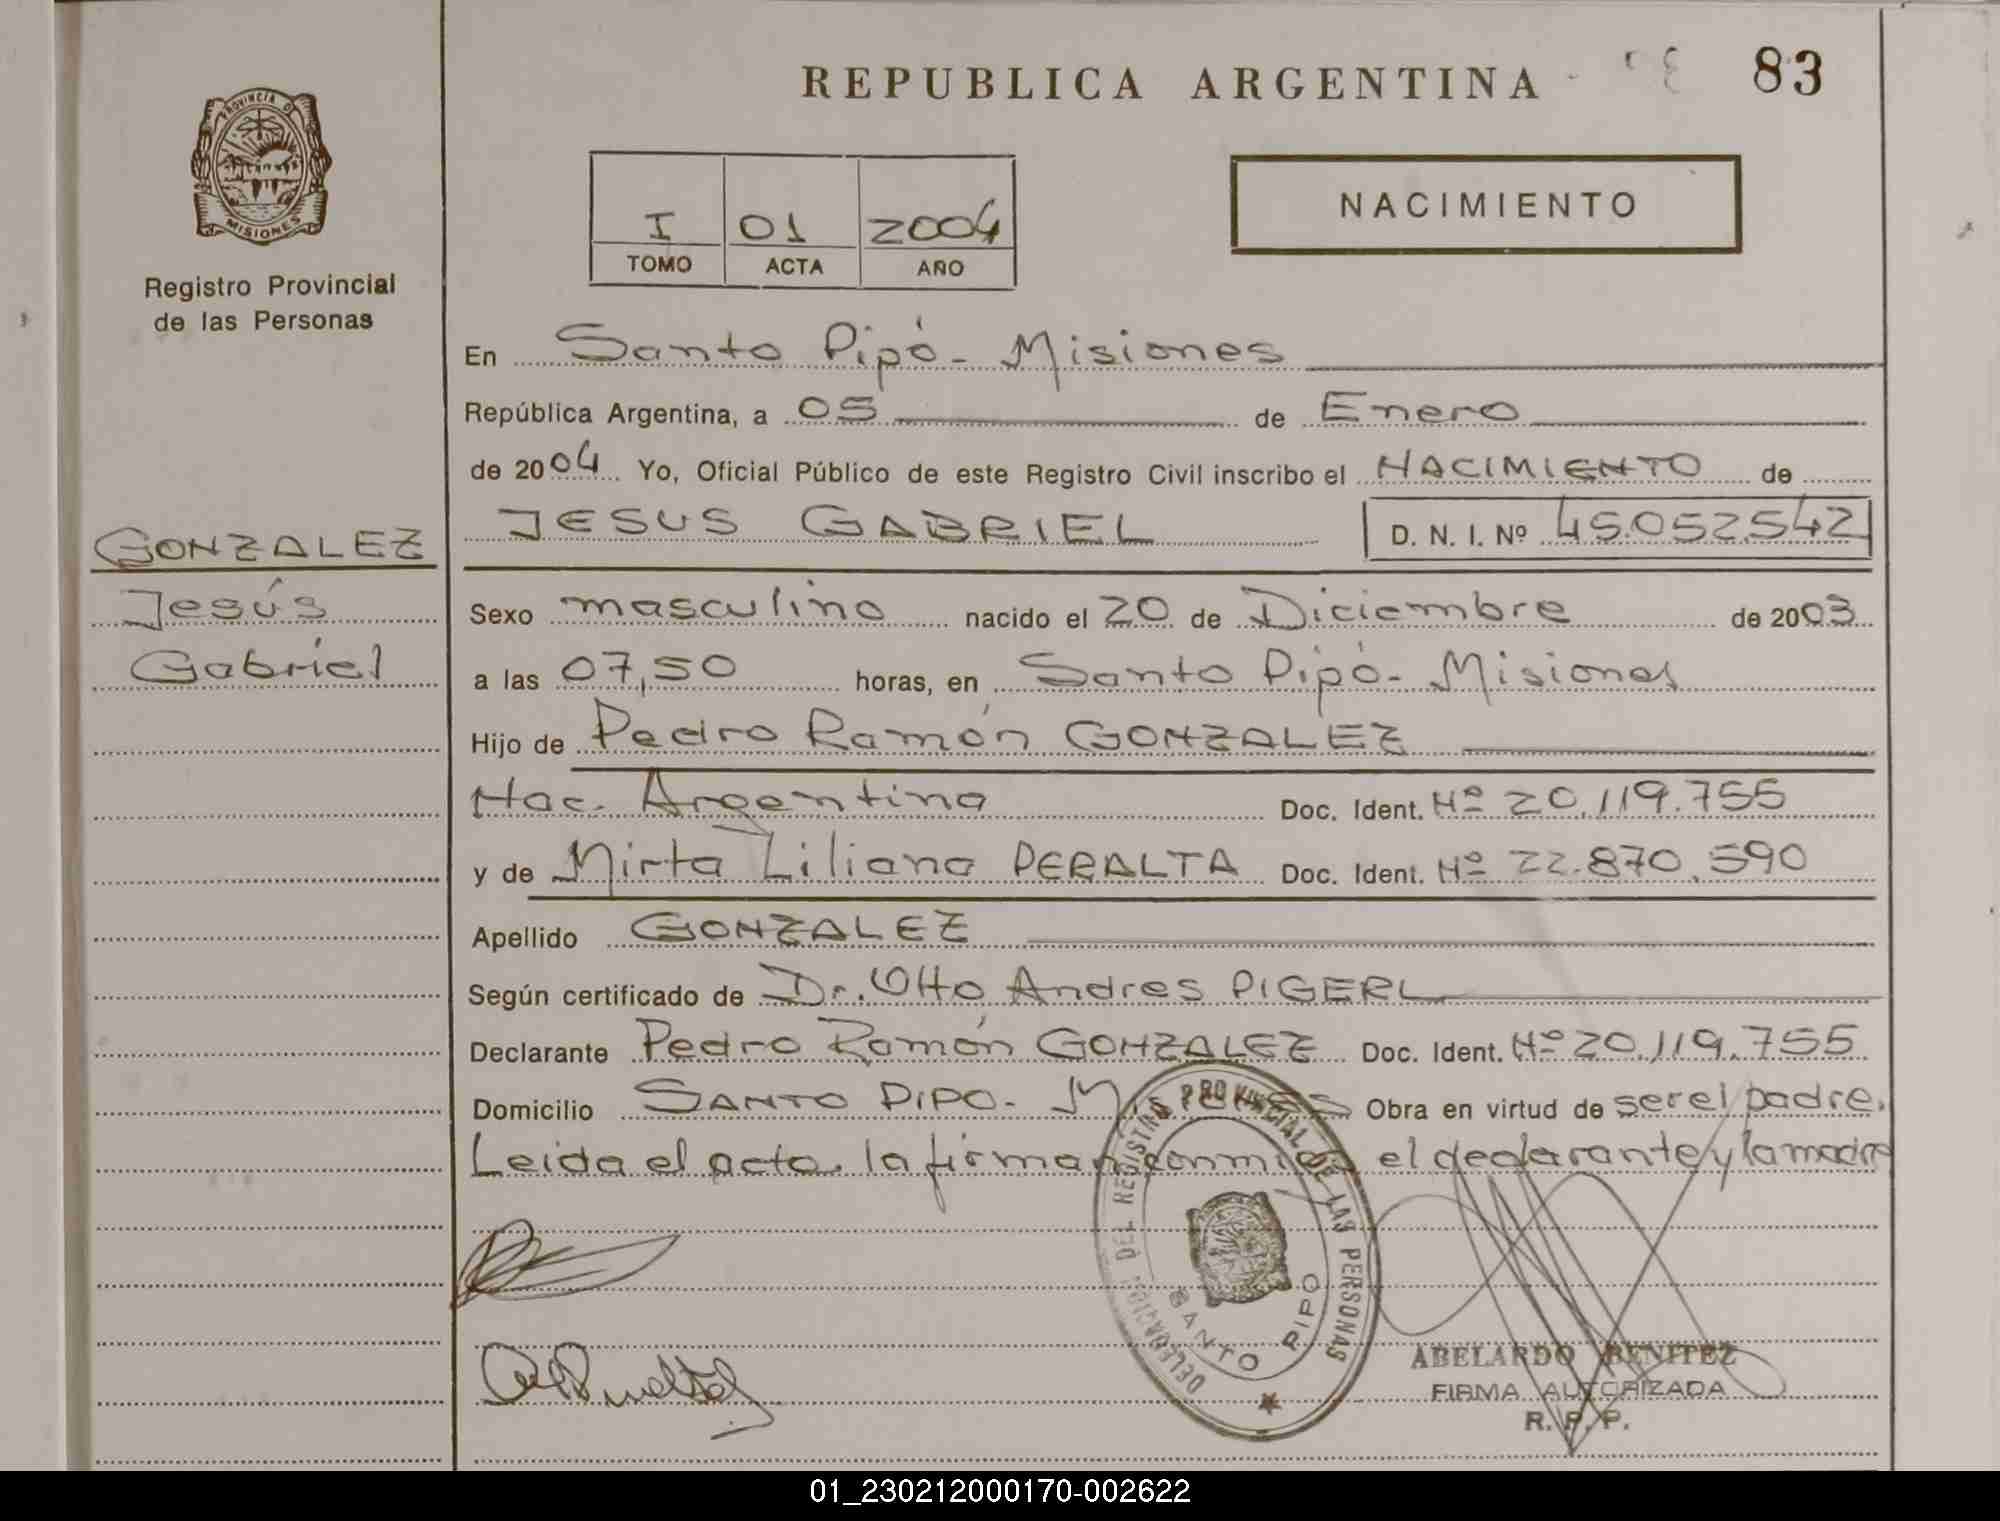 REPUBLICA ARGENTINA
83
PROVINCIA D
MISIONES
Registro Provincial
de las Personas
I 01 2004
TOMO ACTA AÑO
NACIMIENTO
En Santo Pipó - Misiones
República Argentina, a 05 de Enero
de 2004 Yo, Oficial Público de este Registro Civil inscribo el NACIMIENTO de
JESUS GABRIEL D. N. I. Nº 45.052.542
GONZALEZ
Jesús
Gabriel
Sexo masculino nacido el 20 de Diciembre de 2003
a las 07,50 horas, en Santo Pipó - Misiones
Hijo de Pedro Ramón GONZALEZ
Nac. Argentina Doc. Ident. Nº 20.119.755
y de Mirta Liliana PERALTA Doc. Ident. Nº 22.870.590
Apellido GONZALEZ
Según certificado de Dr. Otto Andres PIGERL
Declarante Pedro Ramón GONZALEZ Doc. Ident. Nº 20.119.755
Domicilio SANTO PIPO - Obra en virtud de ser el padre.
Leida el acta, la firman conmigo el declarante y la madre
DELEGACION DEL REGISTRO PROVINCIAL DE LAS PERSONAS
SANTO PIPO
ABELARDO BENITEZ
FIRMA AUTORIZADA
R. P. P.
01_230212000170-002622